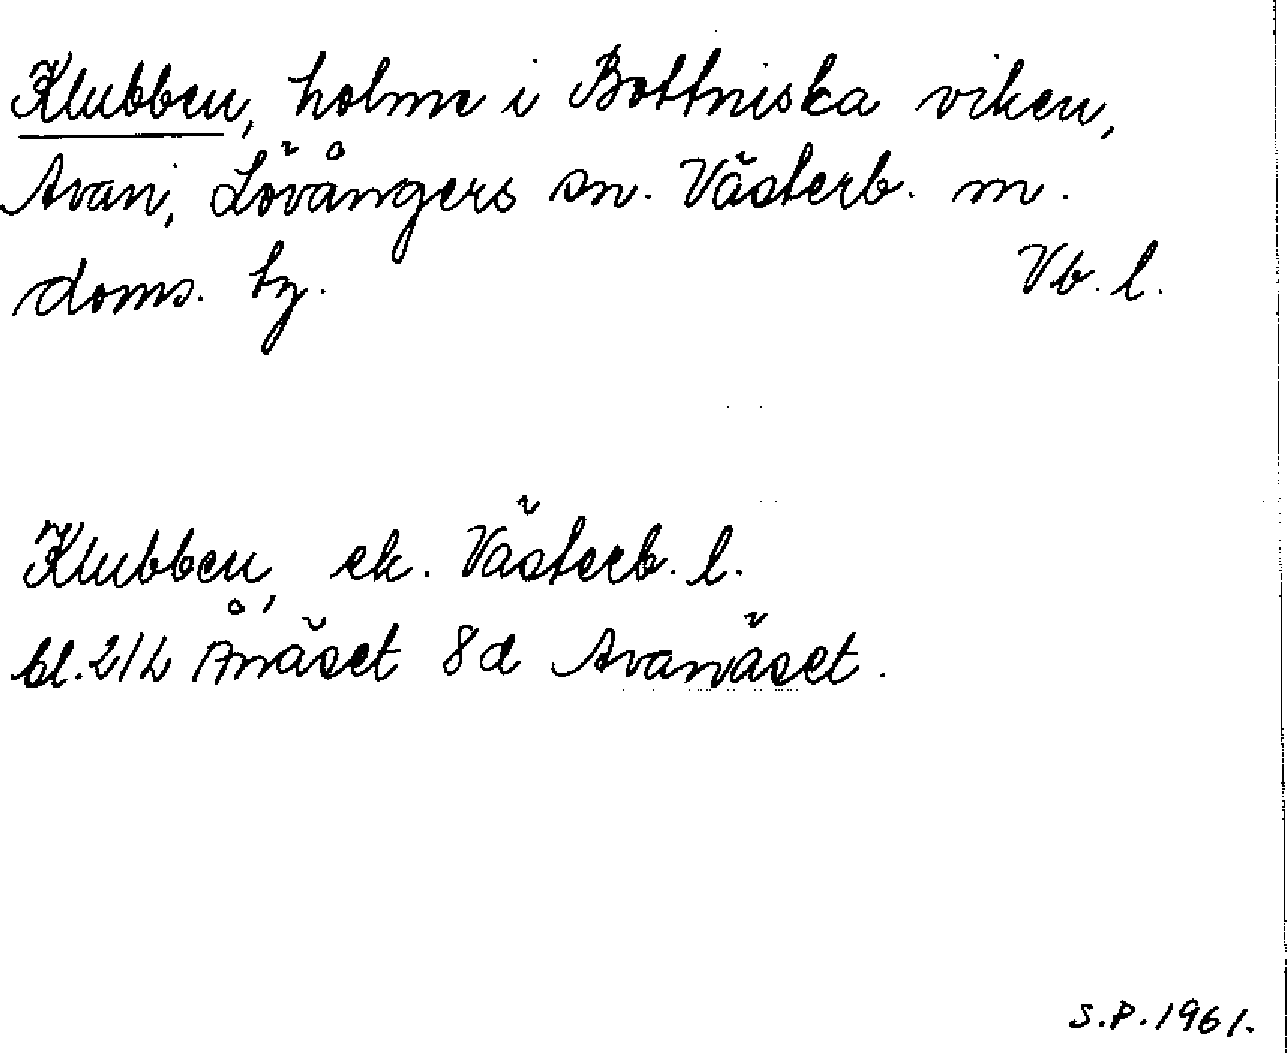 Klubben, holme i Bottniska viken,
Avan, Lövångers sn. Västerb. m.
doms. tg.
Vb. l.
Klubben, ek. Västerb. l.
bl. 21L Ånäset 8d Avanäset.
S.P. 1961.